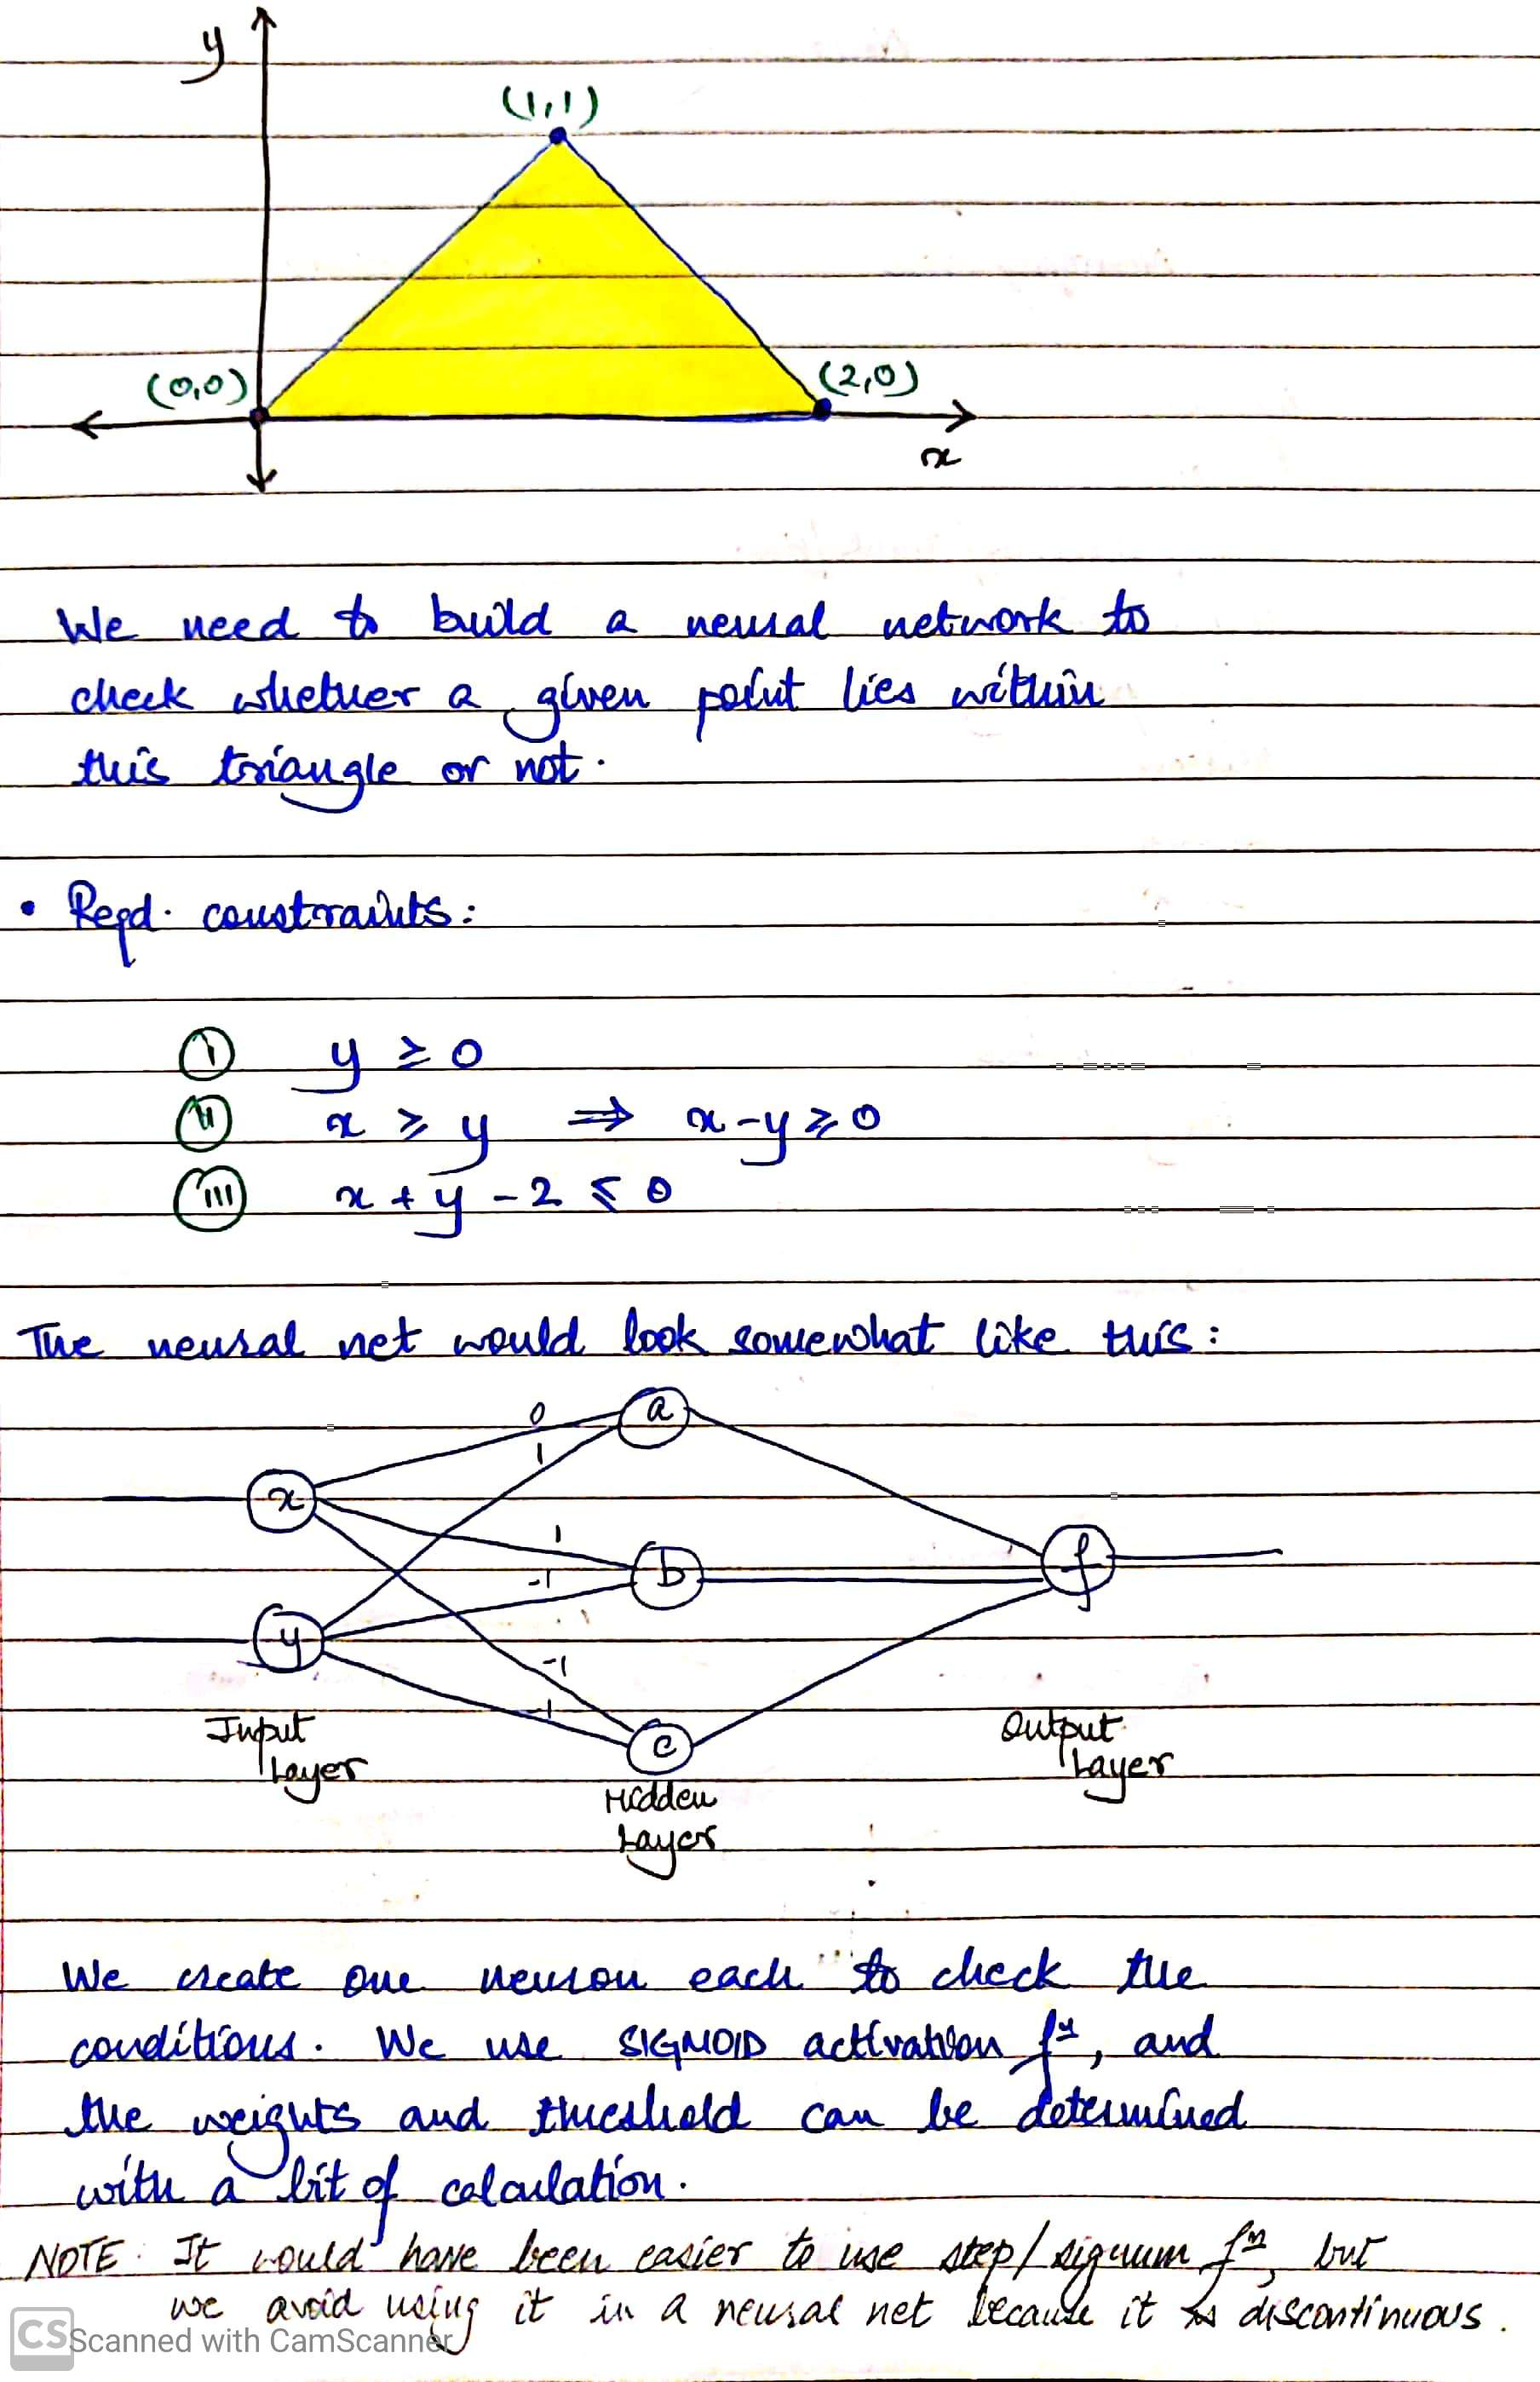 y
(1,1)
(0,0)
(2,0)
x
We need to build a neural network to
check whether a given point lies within
this triangle or not.
• Reqd. constraints:
(i) y ≥ 0
(ii) x ≥ y ⇒ x-y ≥ 0
(iii) x + y - 2 ≤ 0
The neural net would look somewhat like this:
0
a
1
x
1
b
f
-1
y
-1
-1
c
Input
Layer
Output
Layer
Hidden
Layer
We create one neuron each to check the
conditions. We use SIGMOID activation fⁿ, and
the weights and threshold can be determined
with a bit of calculation.
NOTE: It would have been easier to use step/signum fⁿ, but
we avoid using it in a neural net because it is discontinuous.
CS Scanned with CamScanner